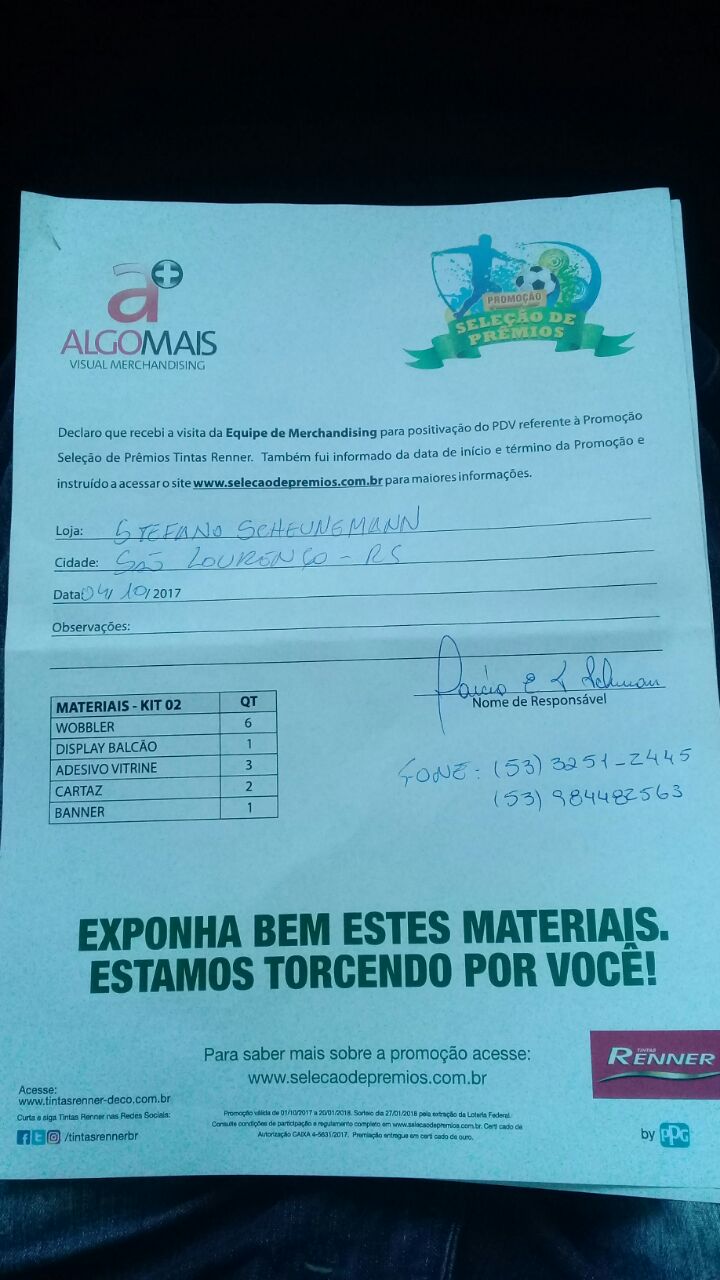 a+
ALGOMAIS
VISUAL MERCHANDISING
PROMOÇÃO
SELEÇÃO DE
PRÊMIOS
Declaro que recebi a visita da Equipe de Merchandising para positivação do PDV referente à Promoção
Seleção de Prêmios Tintas Renner. Também fui informado da data de início e término da Promoção e
instruído a acessar o site www.selecaodepremios.com.br para maiores informações.
Loja: STEFANO SCHEUNEMANN
Cidade: SÃO LOURENÇO - RS
Data: 04/10/2017
Observações:
Nome de Responsável
MATERIAIS - KIT 02 QT
WOBBLER 6
DISPLAY BALCÃO 1
ADESIVO VITRINE 3
CARTAZ 2
BANNER 1
FONE: (53) 3251-2445
(53) 984482563
EXPONHA BEM ESTES MATERIAIS.
ESTAMOS TORCENDO POR VOCÊ!
Para saber mais sobre a promoção acesse:
www.selecaodepremios.com.br
TINTAS
RENNER
Acesse:
www.tintasrenner-deco.com.br
Curta e siga Tintas Renner nas Redes Sociais:
/tintasrennerbr
Promoção válida de 01/10/2017 a 20/01/2018. Sorteio dia 27/01/2018 pela extração da Loteria Federal.
Consulte condições de participação e regulamento completo em www.selecaodepremios.com.br. Certi cado de
Autorização CAIXA 4-5631/2017. Premiação entregue em certi cado de ouro.
by PPG